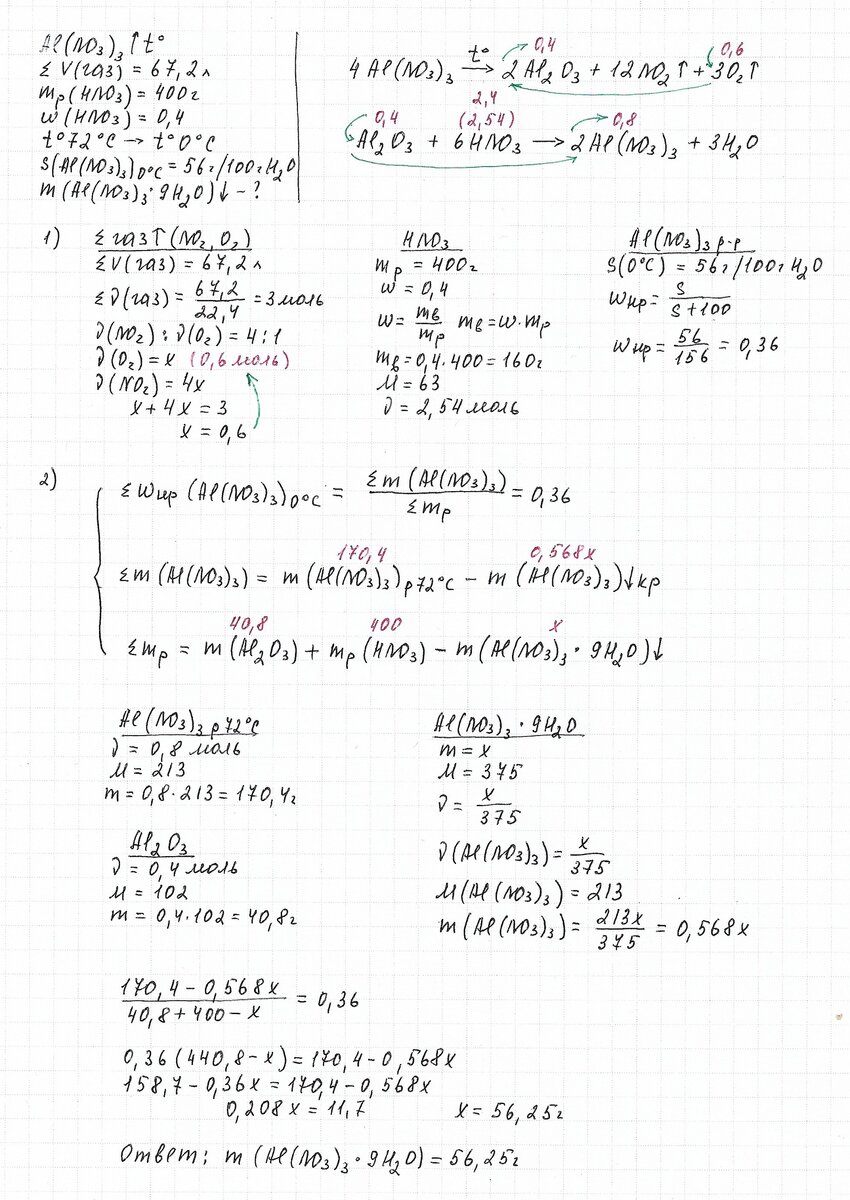 Al(NO₃)₃↑t°
ΣV(газ) = 67,2 л
mр(HNO₃) = 400 г
w(HNO₃) = 0,4
t°72°C → t°0°C
S(Al(NO₃)₃)₀°C = 56 г/100 г H₂O
m(Al(NO₃)₃·9H₂O)↓ - ?
0,4 0,6
4Al(NO₃)₃ —t°→ 2Al₂O₃ + 12NO₂↑ + 3O₂↑
2,4
0,4 (2,54) 0,8
Al₂O₃ + 6HNO₃ → 2Al(NO₃)₃ + 3H₂O
1)
Σ газ↑(NO₂, O₂)
ΣV(газ) = 67,2 л
Σν(газ) = 67,2/22,4 = 3 моль
ν(NO₂) : ν(O₂) = 4 : 1
ν(O₂) = x (0,6 моль)
ν(NO₂) = 4x
x + 4x = 3
x = 0,6
HNO₃
mр = 400 г
w = 0,4
w = mв/mр mв = w·mр
mв = 0,4·400 = 160 г
M = 63
ν = 2,54 моль
Al(NO₃)₃ р-р
S(0°C) = 56 г/100 г H₂O
wнр = S/(S+100)
wнр = 56/156 = 0,36
2)
Σwнр (Al(NO₃)₃)₀°C = Σm(Al(NO₃)₃)/Σmр = 0,36
170,4 0,568x
Σm(Al(NO₃)₃) = m(Al(NO₃)₃)р72°C - m(Al(NO₃)₃)↓кр
40,8 400 x
Σmр = m(Al₂O₃) + mр(HNO₃) - m(Al(NO₃)₃·9H₂O)↓
Al(NO₃)₃ р72°C
ν = 0,8 моль
M = 213
m = 0,8·213 = 170,4 г
Al₂O₃
ν = 0,4 моль
M = 102
m = 0,4·102 = 40,8 г
Al(NO₃)₃·9H₂O
m = x
M = 375
ν = x/375
ν(Al(NO₃)₃) = x/375
M(Al(NO₃)₃) = 213
m(Al(NO₃)₃) = 213x/375 = 0,568x
(170,4 - 0,568x)/(40,8 + 400 - x) = 0,36
0,36(440,8 - x) = 170,4 - 0,568x
158,7 - 0,36x = 170,4 - 0,568x
0,208x = 11,7 x = 56,25 г
Ответ: m(Al(NO₃)₃·9H₂O) = 56,25 г